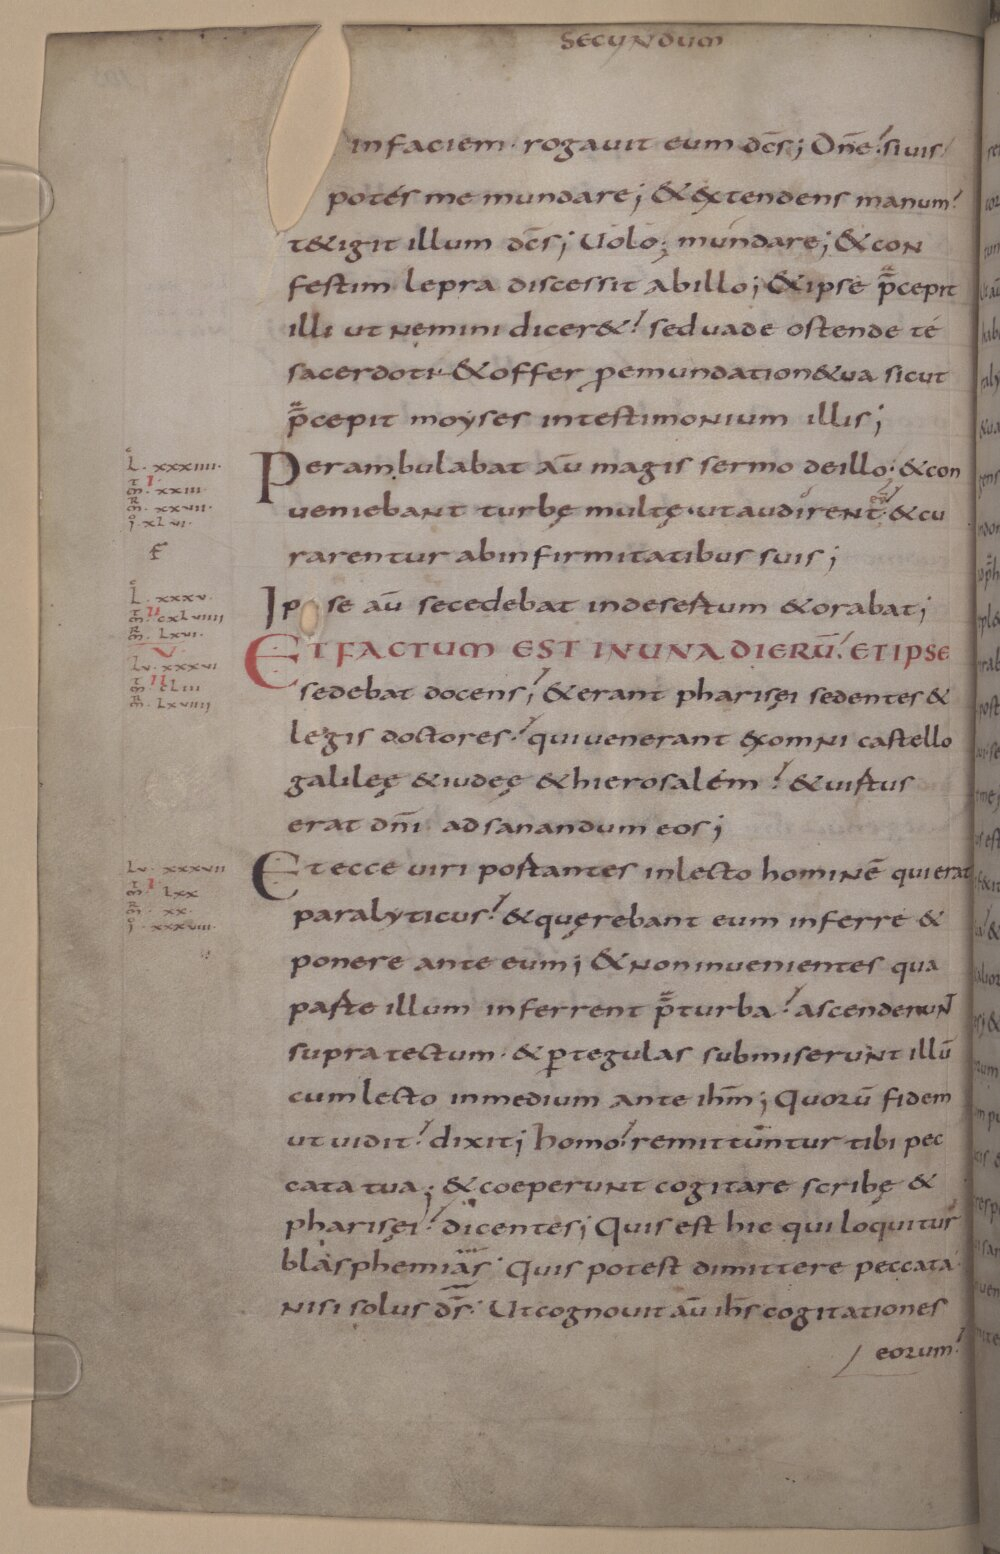 SECUNDUM
in faciem· rogauit eum dc̄s; Dn̄e? si uis
potés me mundare; & extendens manum?
t&igit illum dc̄s; Uolo; mundare; & con
festim lepra discessit ab illo; & ipse p̄cepit
illi ut nemini dicer&? sed uade ostende té
sacerdoti· & offer pro emundation& ua sicut
p̄cepit moyses in testimonium illis;
L· xxxiiii·
m̄· xxiii·
m̄· xxvii·
i· xlvi·
Perambulabat aū magis sermo de illo· & con
ueniebant turbę multę· ut audirent· & cu
rarentur ab infirmitatibus suis;
L· xxxv·
m̄· cxlviiii
m̄· lxvi·
Ipse aū secedebat in desertum & orabat;
V
Lu· xxxvi
m̄· cliii
m̄· lxviiii
ET FACTUM EST IN UNA DIERŪ? ET IPSE
sedebat docens;? & erant pharisęi sedentes &
legis doctores? qui uenerant ex omni castello
galileę & iudeę & hierosalém? & uirtus
erat dn̄i ad sanandum eos;
Lu· xxxvii
m̄· lxx
m̄· xx
i· xxxviii·
Et ecce uiri portantes in lecto hominē qui erat
paralyticus? & quęrebant eum inferre &
ponere ante eum; & non inuenientes qua
parte illum inferrent p̄ turba? ascenderunt
supra tectum· & ꝑ tegulas submiserunt illū
cum lecto in medium ante ih̄m; Quorū fidem
ut uidit? dixit; homo? remittuntur tibi pec
cata tua; & coeperunt cogitare scribę &
pharisęi? dicentes; Quis est hic qui loquitur
blasphemias· Quis potest dimittere peccata·
nisi solus d̄s· Ut cognouit aū ih̄s cogitationes
eorum?